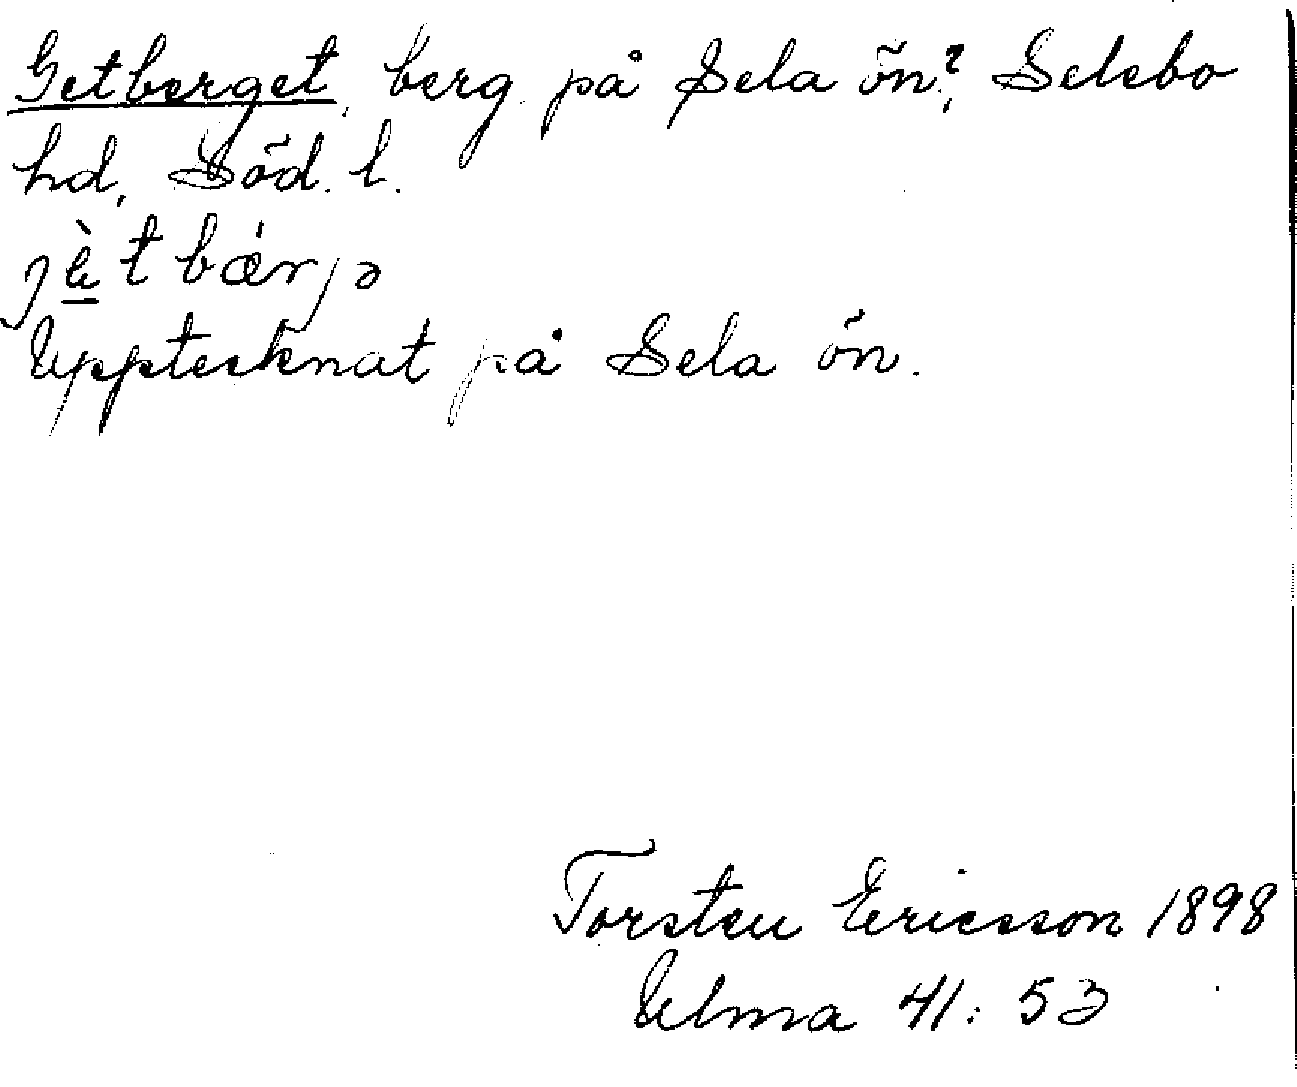 Getberget, berg på Sela ön?, Selebo
hd, Söd. l.
jè̱t bǽrjə
Upptecknat på Sela ön.
Torsten Ericsson 1898
Ulma 41: 53